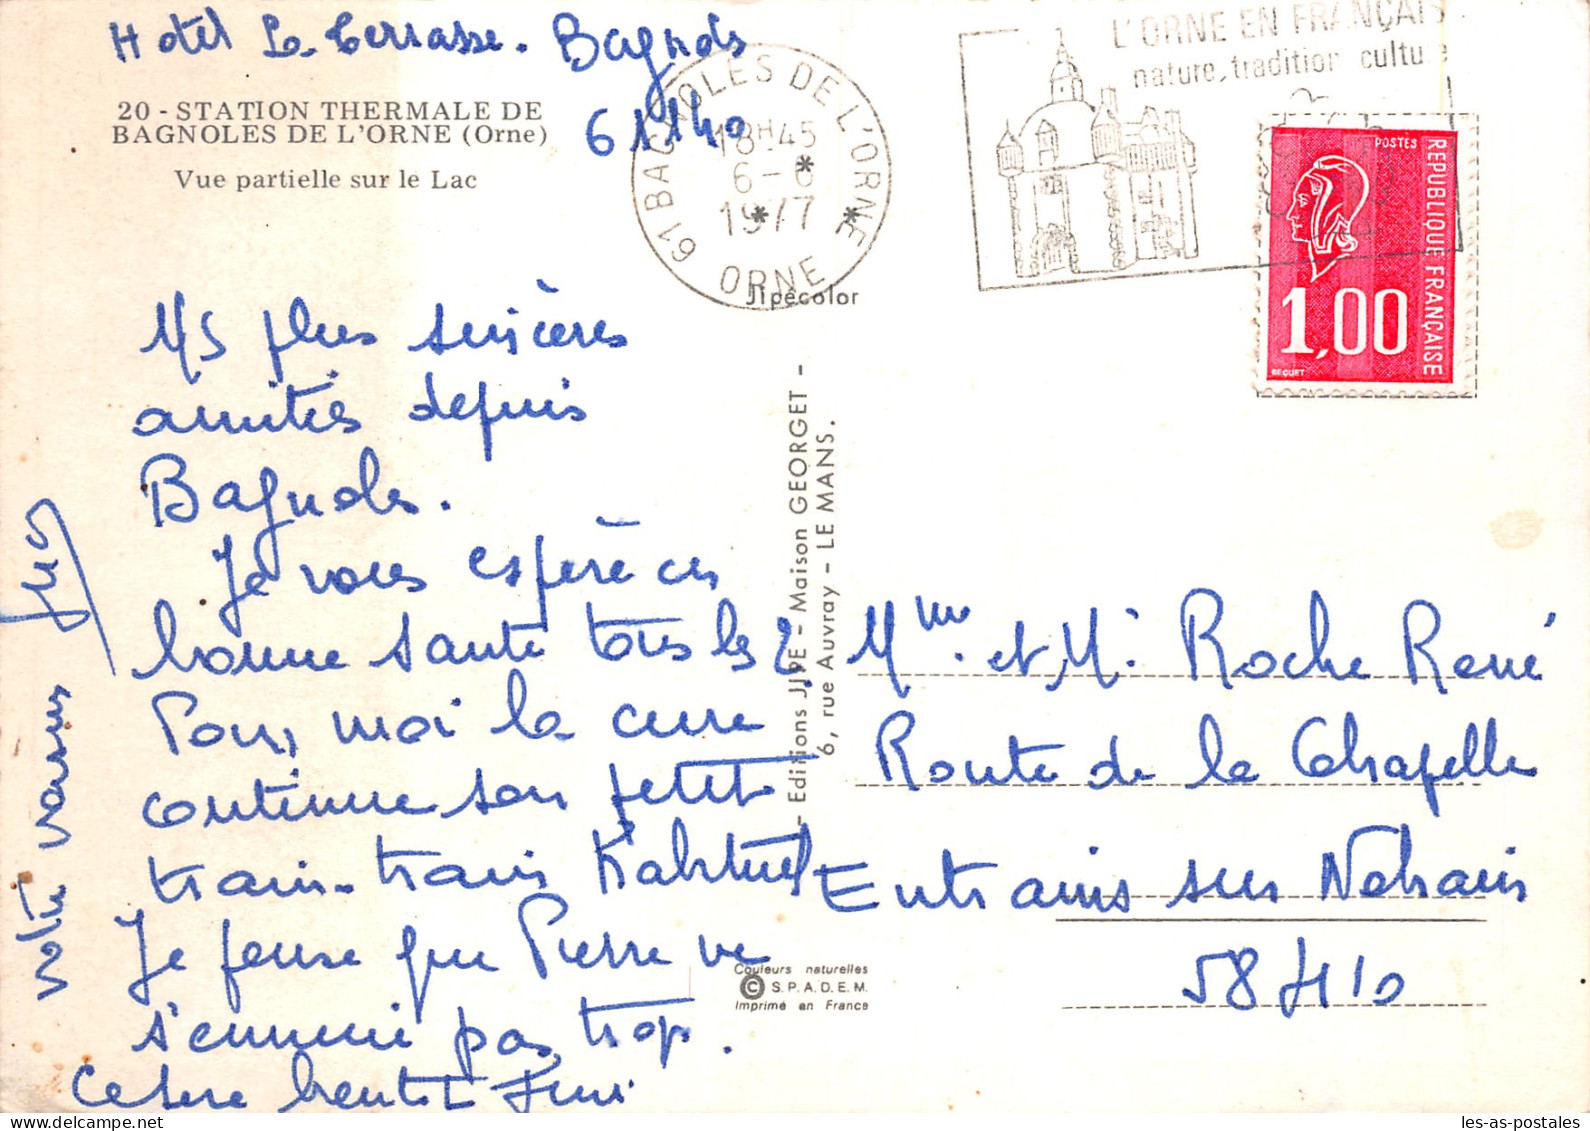 Hotel La Terrasse. Bagnols
61140
20 - STATION THERMALE DE
BAGNOLES DE L'ORNE (Orne)
Vue partielle sur le Lac
61 BAGNOLES DE L'ORNE
18H45
6-6
1977
ORNE
L'ORNE EN FRANÇAIS
nature, tradition culture
POSTES
REPUBLIQUE FRANÇAISE
1,00
BEQUET
Jipécolor
plus sincères
amitiés depuis
Bagnoles.
Je vous espère en
bonne santé tous les 2.
Pour moi la cure
continue son petit
train-train habituel
Je pense que Pierre ne
s'ennuie pas trop.
Ce sera bientôt fini
votre
- Editions JIPE - Maison GEORGET -
6, rue Auvray - LE MANS.
Couleurs naturelles
© S.P.A.D.E.M.
Imprimé en France
Mme. et M. Roche René
Route de la Chapelle
Entrains sur Nohain
58410
les-as-postales